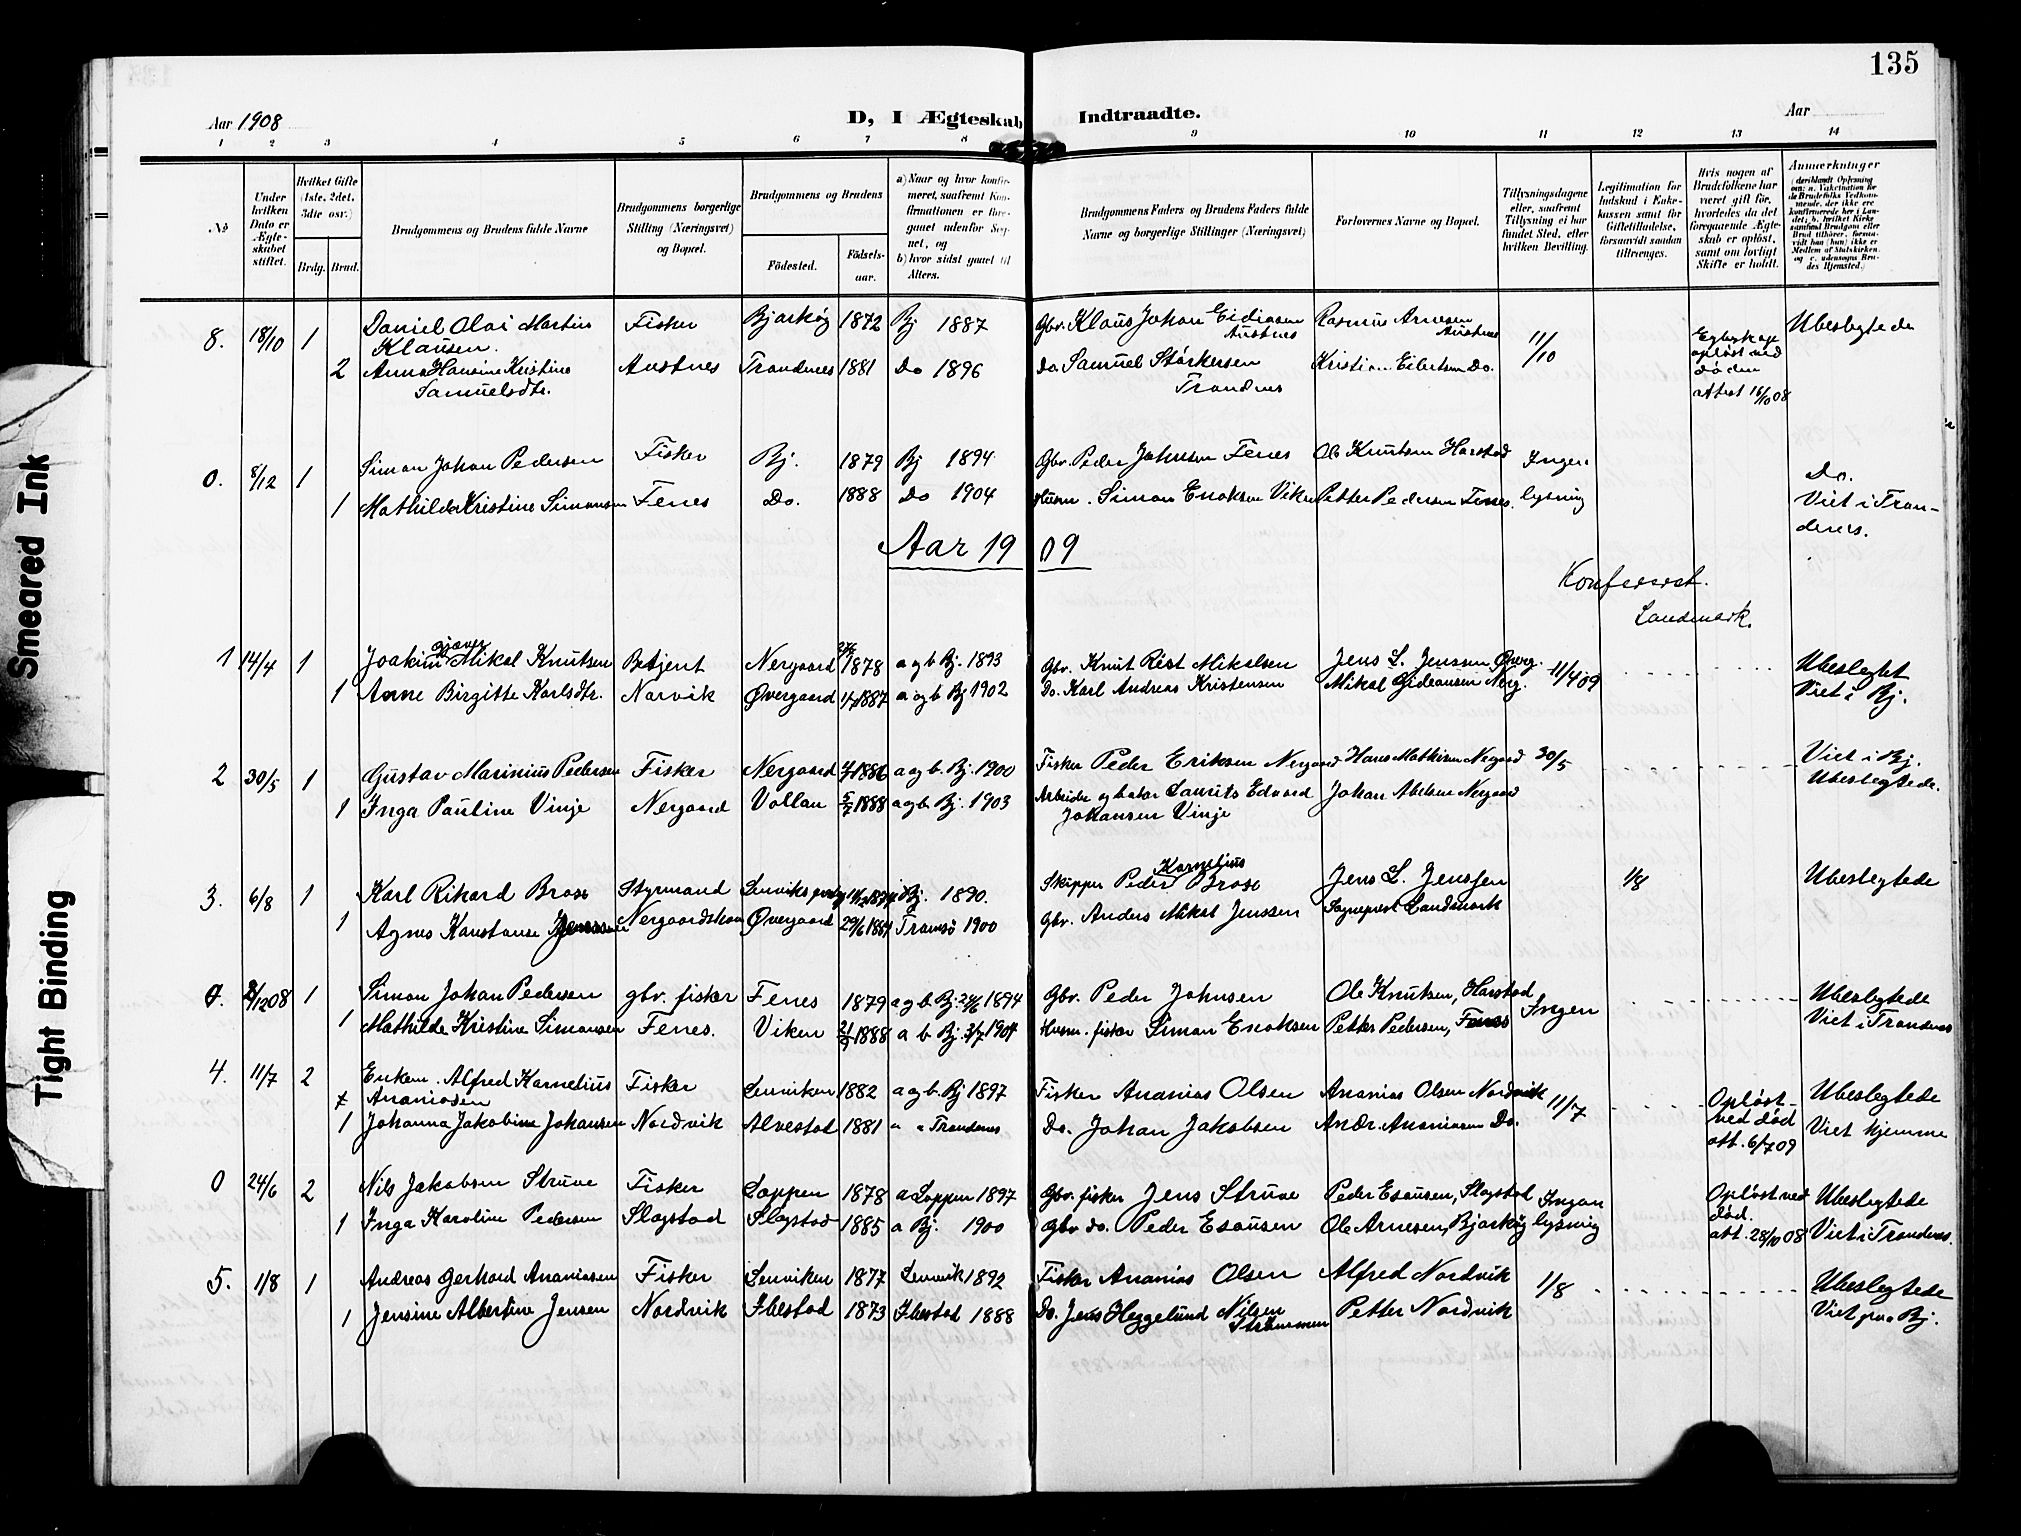 135
Aar 1908
D, I Ægteskab Indtraadte.
Aar
1 2 3 4 5 6 7 8 9 10 11 12 13 14
No
Under hvilken Dato er Ægteskabet stiftet.
Hvilket Gifte (1ste, 2det, 3die osv.)
Brdg. Brud.
Brudgommens og Brudens fulde Navne
Brudgommens borgerlige Stilling (Næringsvei) og Bopæl.
Brudgommens og Brudens
Fødested.
Fødsels-aar.
a) Naar og hvor konfirmeret, saafremt Konfirmationen er foregaaet udenfor Sognet, og
b) hvor sidst gaaet til Alters.
Brudgommens Faders og Brudens Faders fulde Navne og borgerlige Stillinger (Næringsvei)
Forlovernes Navne og Bopæl.
Tillysningsdagene eller, saafremt Tillysning ei har fundet Sted, efter hvilken Bevilling.
Legitimation for Indskud i Enkekassen samt for Giftetilladelse, forsaavidt saadan tiltrænges.
Hvis nogen af Brudefolkene har været gift før, hvorledes da det foregaaende Ægteskab er opløst, samt om lovligt Skifte er holdt.
Anmærkninger
8. 18/10 1 Daniel Olai Martin Klausen. Fisker Bjarkøy 1872 Bj 1887 Gbr. Klaus Johan Eidissen Austnes Rasmus Arnesen Austnes 11/10 Egteskap opløst ved døden attest 16/10 08 Ubeslegtede
2 Anna Hansine Kristine Samuelsdtr. Austnes Trondenes 1881 Do 1896 Do. Samuel Størkersen Trondnes Eibertsen Do.
0. 8/12 1 Simon Johan Pedersen Fisker Bj. 1879 Bj 1894 Gbr. Peder Johnsen Fenes Ole Knutsen Harstad Ingen lysning Do. Viet i Trondenes.
1 Mathilde Kristine Simonsen Fenes Do. 1888 Do 1904 Husm. Simon Enoksen Viken Petter Pedersen Fenes.
Aar 1909
Konfererst.
Landmark.
1 14/4 1 Joakim Mikal Knutsen Betjent Nergaard 1878 a og b Bj. 1893 Gbr. Knut Rist Mikalsen Jens L. Jenssen Øverg. 11/4 09 Ubeslegtet
1 Anne Birgitte Karlsdtr. Narvik Øvergaard 1887 a og b Bj 1902 Do. Karl Andreas Kristensen Mikal Gideonsen Nerg. Viet i Bj.
2 30/5 1 Gustav Marinius Pedersen Fisker Nergaard 1886 a og b. Bj. 1900 Fisker Peder Eriksen Nergaard Hans Mathisen Nergaard 30/5 Viet i Bj.
Ubeslegtede.
1 Inga Pauline Vinje Nergaard Vollan 1888 a og b. Bj. 1903 Laurits Edvard Johansen Vinje Johan Abelsen Nergaard
3. 6/8 1 Karl Rikard Brox Styrmand Bj. 1890. Skipper Peder Kornelius Brox Jens L. Jenssen 1/8 Ubeslegtede
1 Agnes Konstanse Jenssen Øvergaard 29/6 Tromsø 1900 Gbr. Anders Mikal Jenssen Sogneprest Landmark
0. 8/12 08 1 Simon Johan Pedersen gbr. fisker Fenes 1879 a og b Bj. 1894 Gbr. Peder Johnsen Ole Knutsen, Harstad Ingen Ubeslegtede
1 Mathilde Kristine Simonsen Fenes. Viken 1888 a b Bj. 1904 Husm. fisker Simon Enoksen Petter Pedersen, Fenes Viet i Trondenes
4. 11/7 2 Enkem. Alfred Kornelius Ananiassen Fisker Lenviken 1882 a og b Bj 1897 Fisker Ananias Olsen Ananias Olsen Nordvik 11/7 Opløst ved død att. 6/7 09 Ubeslegtede
1 Johanna Jakobine Johansen Nordvik Alvestad 1881 " " Trondenes Do. Johan Jakobsen Andr. Ananiassen Do. Viet hjemme
0 24/6 2 Nils Jakobsen Struve Fisker Loppen 1878 a Loppen 1897 Gbr. fisker Jens Struve Peder Esausen, Slagstad Ingen lysning Opløst ved død. att. 28/10 08 Ubeslegtede
1 Inga Karoline Pedersen Slagstad Slagstad 1885 a Bj. 1900 Gbr do. Peder Esausen Ole Arnesen, Bjarkøy Viet i Trondenes.
5. 1/8 1 Andreas Gerhard Ananiassen Fisker Lenviken 1877 Lenvik 1892 Fisker Ananias Olsen Alfred Nordvik 1/8 Ubeslegtede
1 Jensine Albertine Jensen Nordvik Ibestad 1873 Ibestad 1888 Do. Jens Heggelund Nilsen Strømmen Petter Nordvik Viet paa Bj.
Smeared Ink
Tight Binding